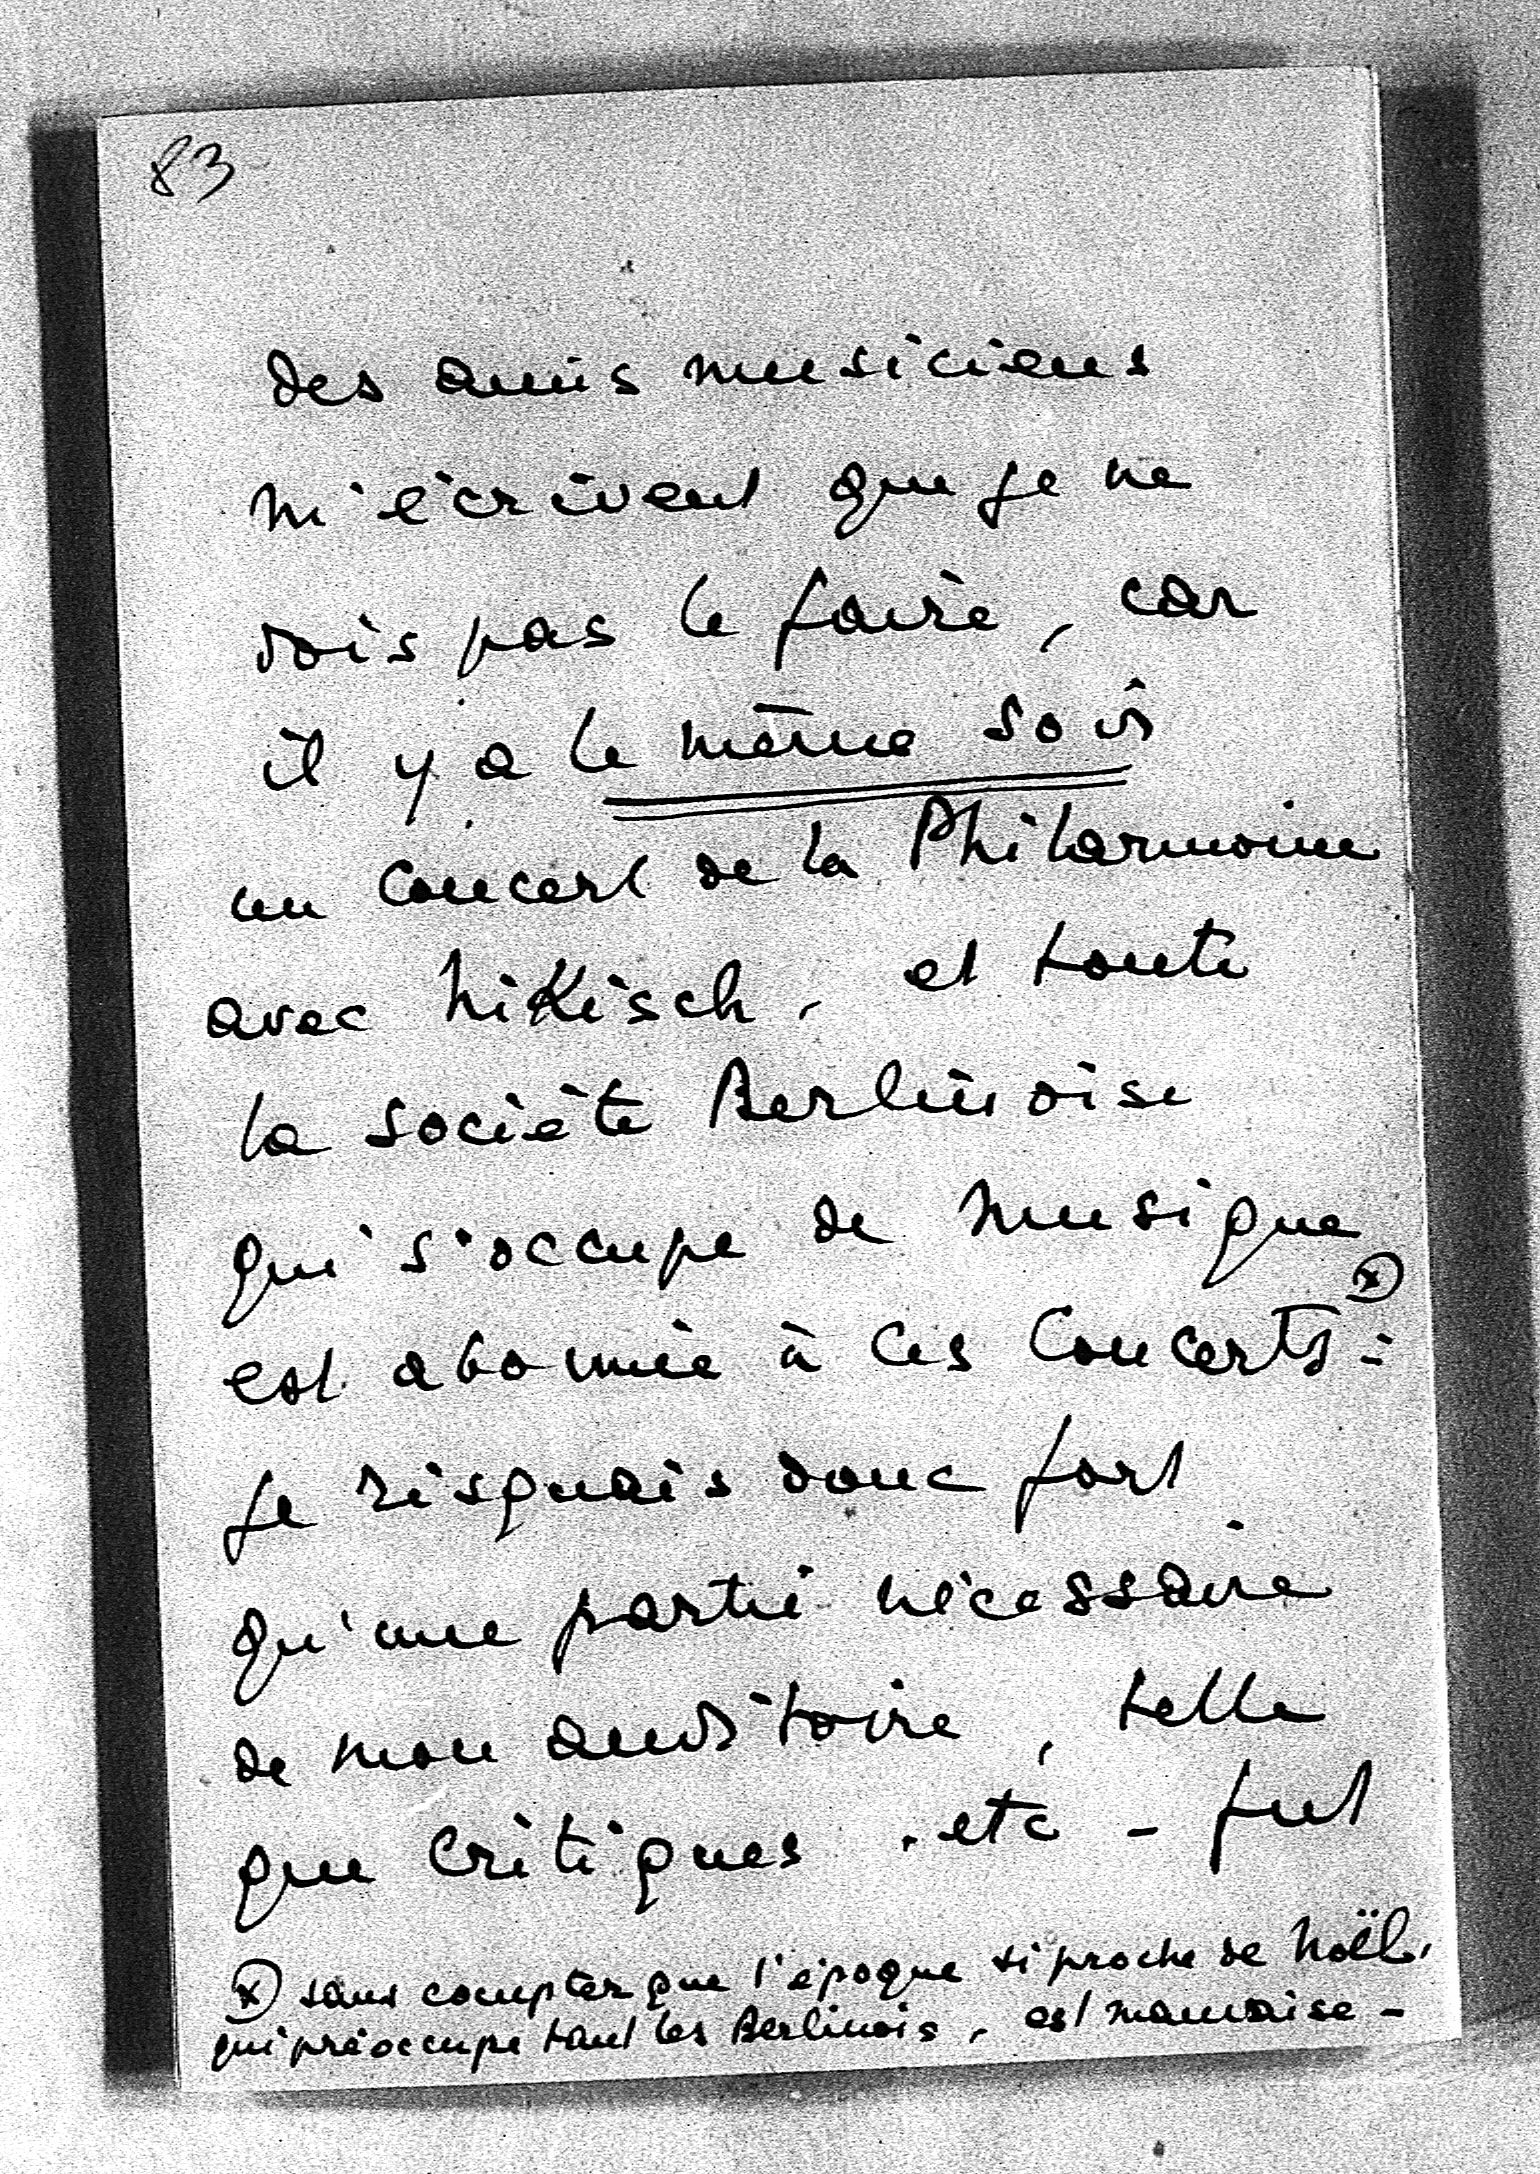 83
des amis musiciens
m'écrivent que je ne
dois pas le faire, car
il y a le même soir
un Concert de la Philarmonie
avec Nikisch, et toute
la société Berlinoise
qui s'occupe de Musique
est abonnée à ces Concerts (x) -
je risquais donc fort
qu'une partie nécessaire
de mon auditoire, telle
que critiques, etc - fut
(x) sans compter que l'époque si proche de Noël,
qui préoccupe tant les Berlinois, est mauvaise -